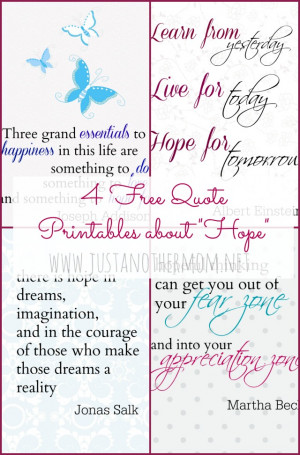 Three grand essentials to
happiness in this life are
something to do
something to
and something
Joseph Addison
Learn from
yesterday
Live for
today
Hope for
tomorrow
Albert Einstein
4 Free Quote
Printables about "Hope"
WWW.JUSTANOTHERMOM.NET
there is hope in
dreams,
imagination,
and in the courage
of those who make
those dreams a
reality
Jonas Salk
thinking
can get you out of
your fear zone
and into your
appreciation zone
Martha Bec